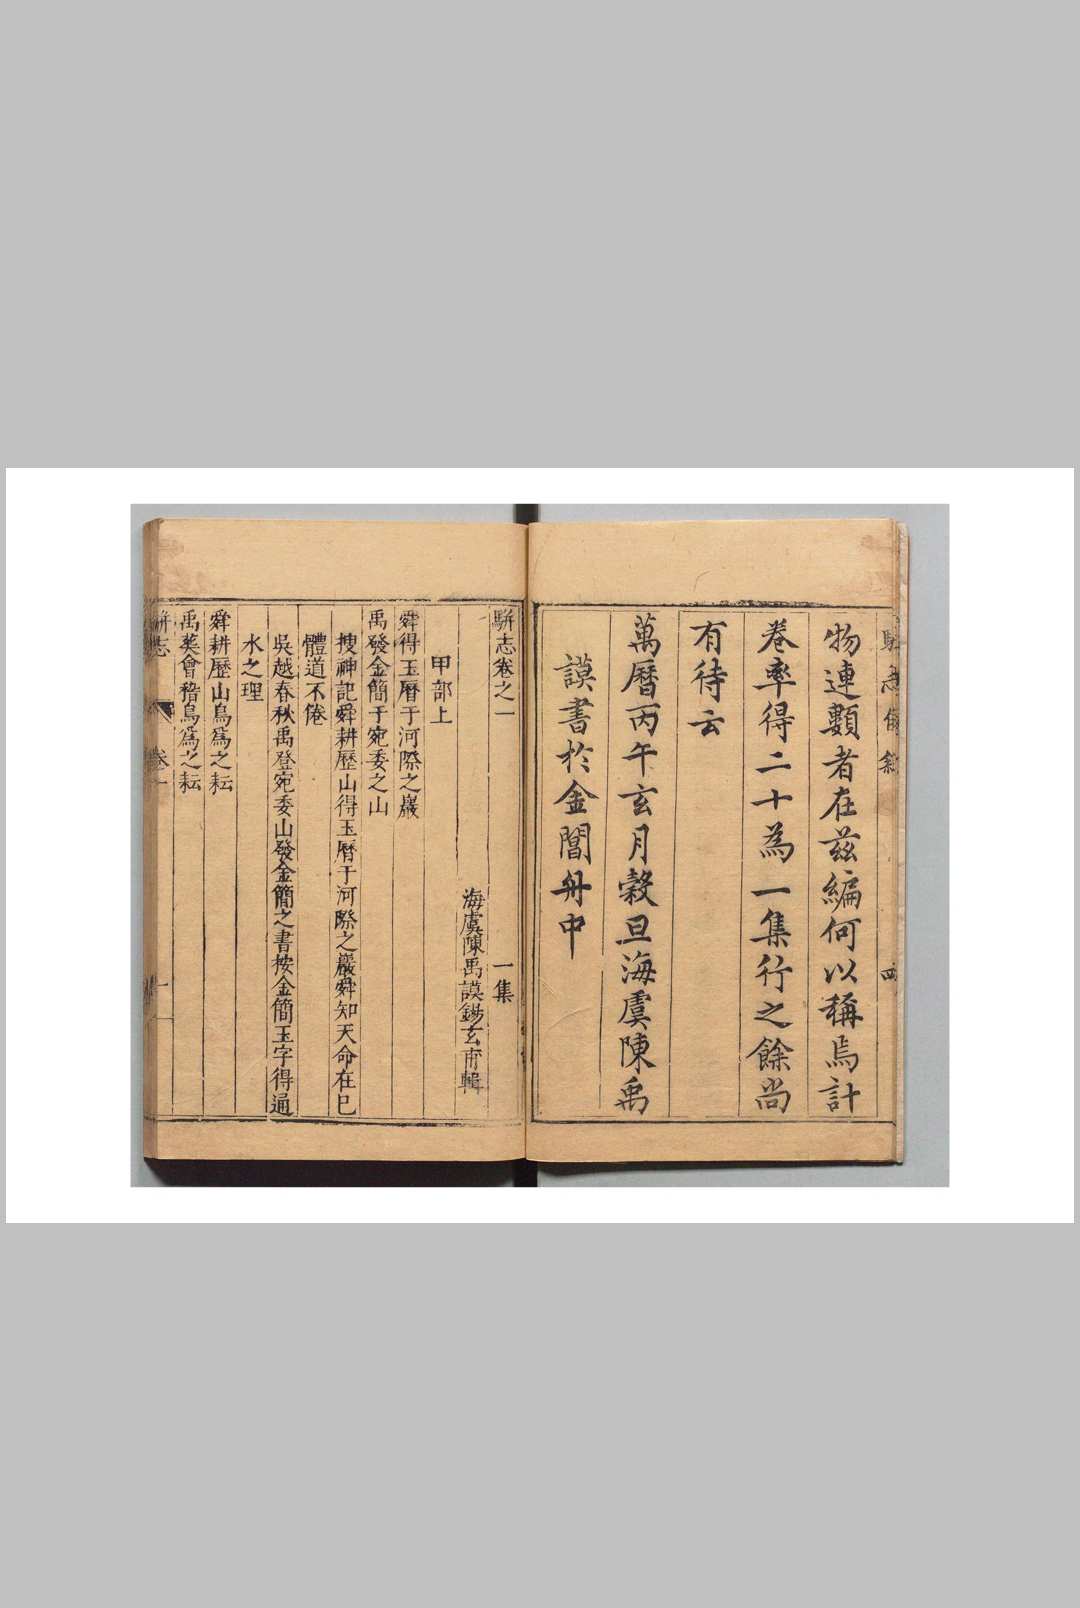 物連顙者在茲編何以稱焉計
卷率得二十為一集行之餘尚
有待云
萬曆丙午玄月穀旦海虞陳禹
謨書於金閶舟中
駢志卷之一
一集
海虞陳禹謨錫玄甫輯
甲部上
舜得玉曆于河際之巖
禹發金簡于宛委之山
搜神記舜耕歷山得玉曆于河際之巖舜知天命在已
體道不倦
吳越春秋禹登宛委山發金簡之書按金簡玉字得通
水之理
舜耕歷山鳥爲之耘
禹葬會稽鳥爲之耘
駢志
卷一
一